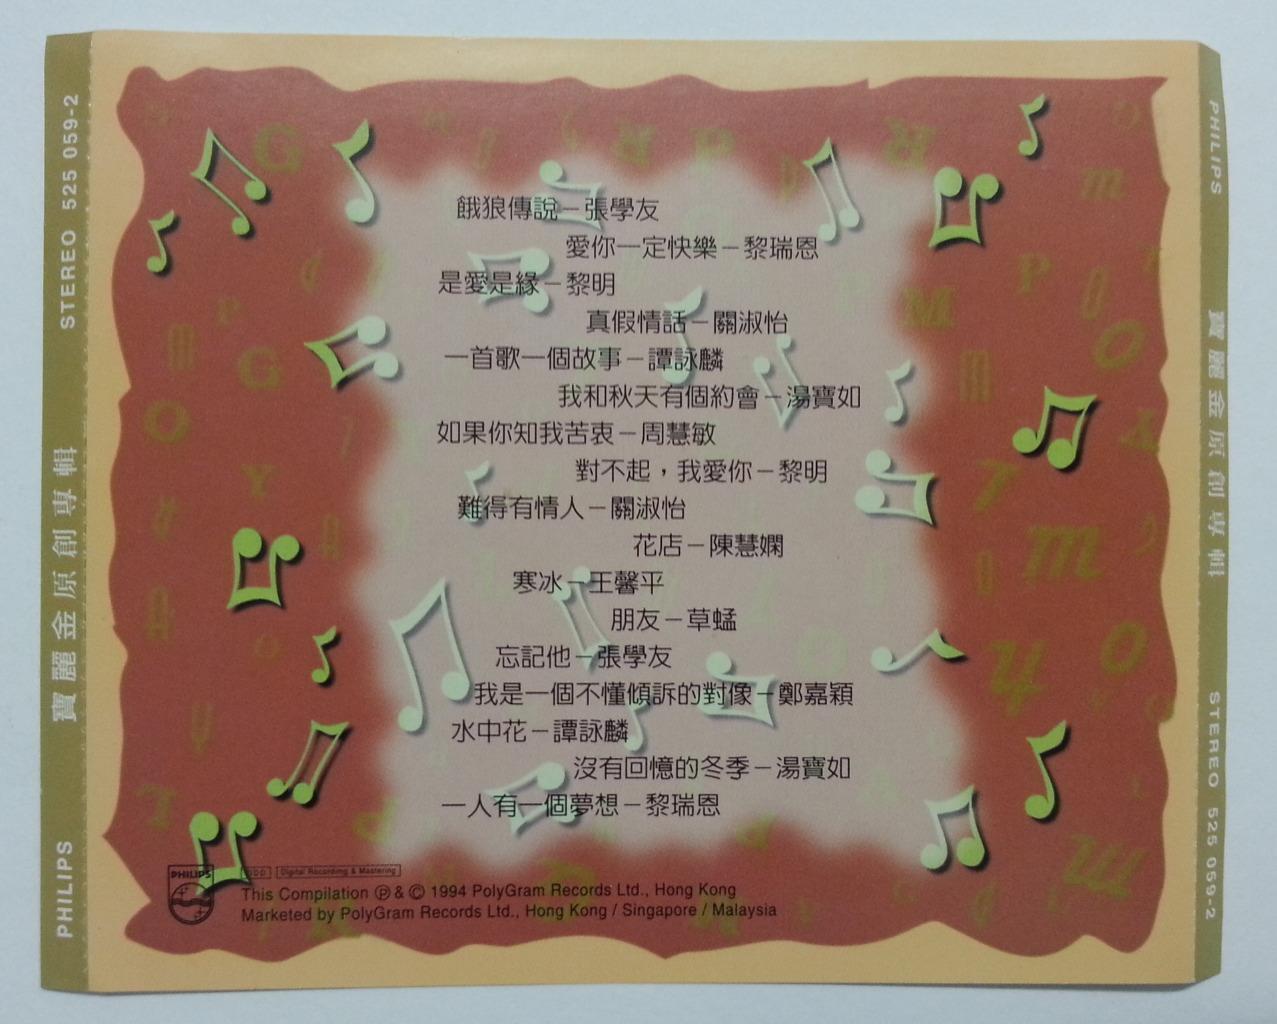 餓狼傳說－張學友
愛你一定快樂－黎瑞恩
是愛是緣－黎明
真假情話－關淑怡
一首歌一個故事－譚詠麟
我和秋天有個約會－湯寶如
如果你知我苦衷－周慧敏
對不起，我愛你－黎明
難得有情人－關淑怡
花店－陳慧嫻
寒冰－王馨平
朋友－草蜢
忘記他－張學友
我是一個不懂傾訴的對像－鄭嘉穎
水中花－譚詠麟
沒有回憶的冬季－湯寶如
一人有一個夢想－黎瑞恩
PHILIPS
DDD Digital Recording & Mastering
This Compilation Ⓟ & © 1994 PolyGram Records Ltd., Hong Kong
Marketed by PolyGram Records Ltd., Hong Kong / Singapore / Malaysia
PHILIPS 寶麗金原創專輯 STEREO 525 059-2
PHILIPS 寶麗金原創專輯 STEREO 525 059-2